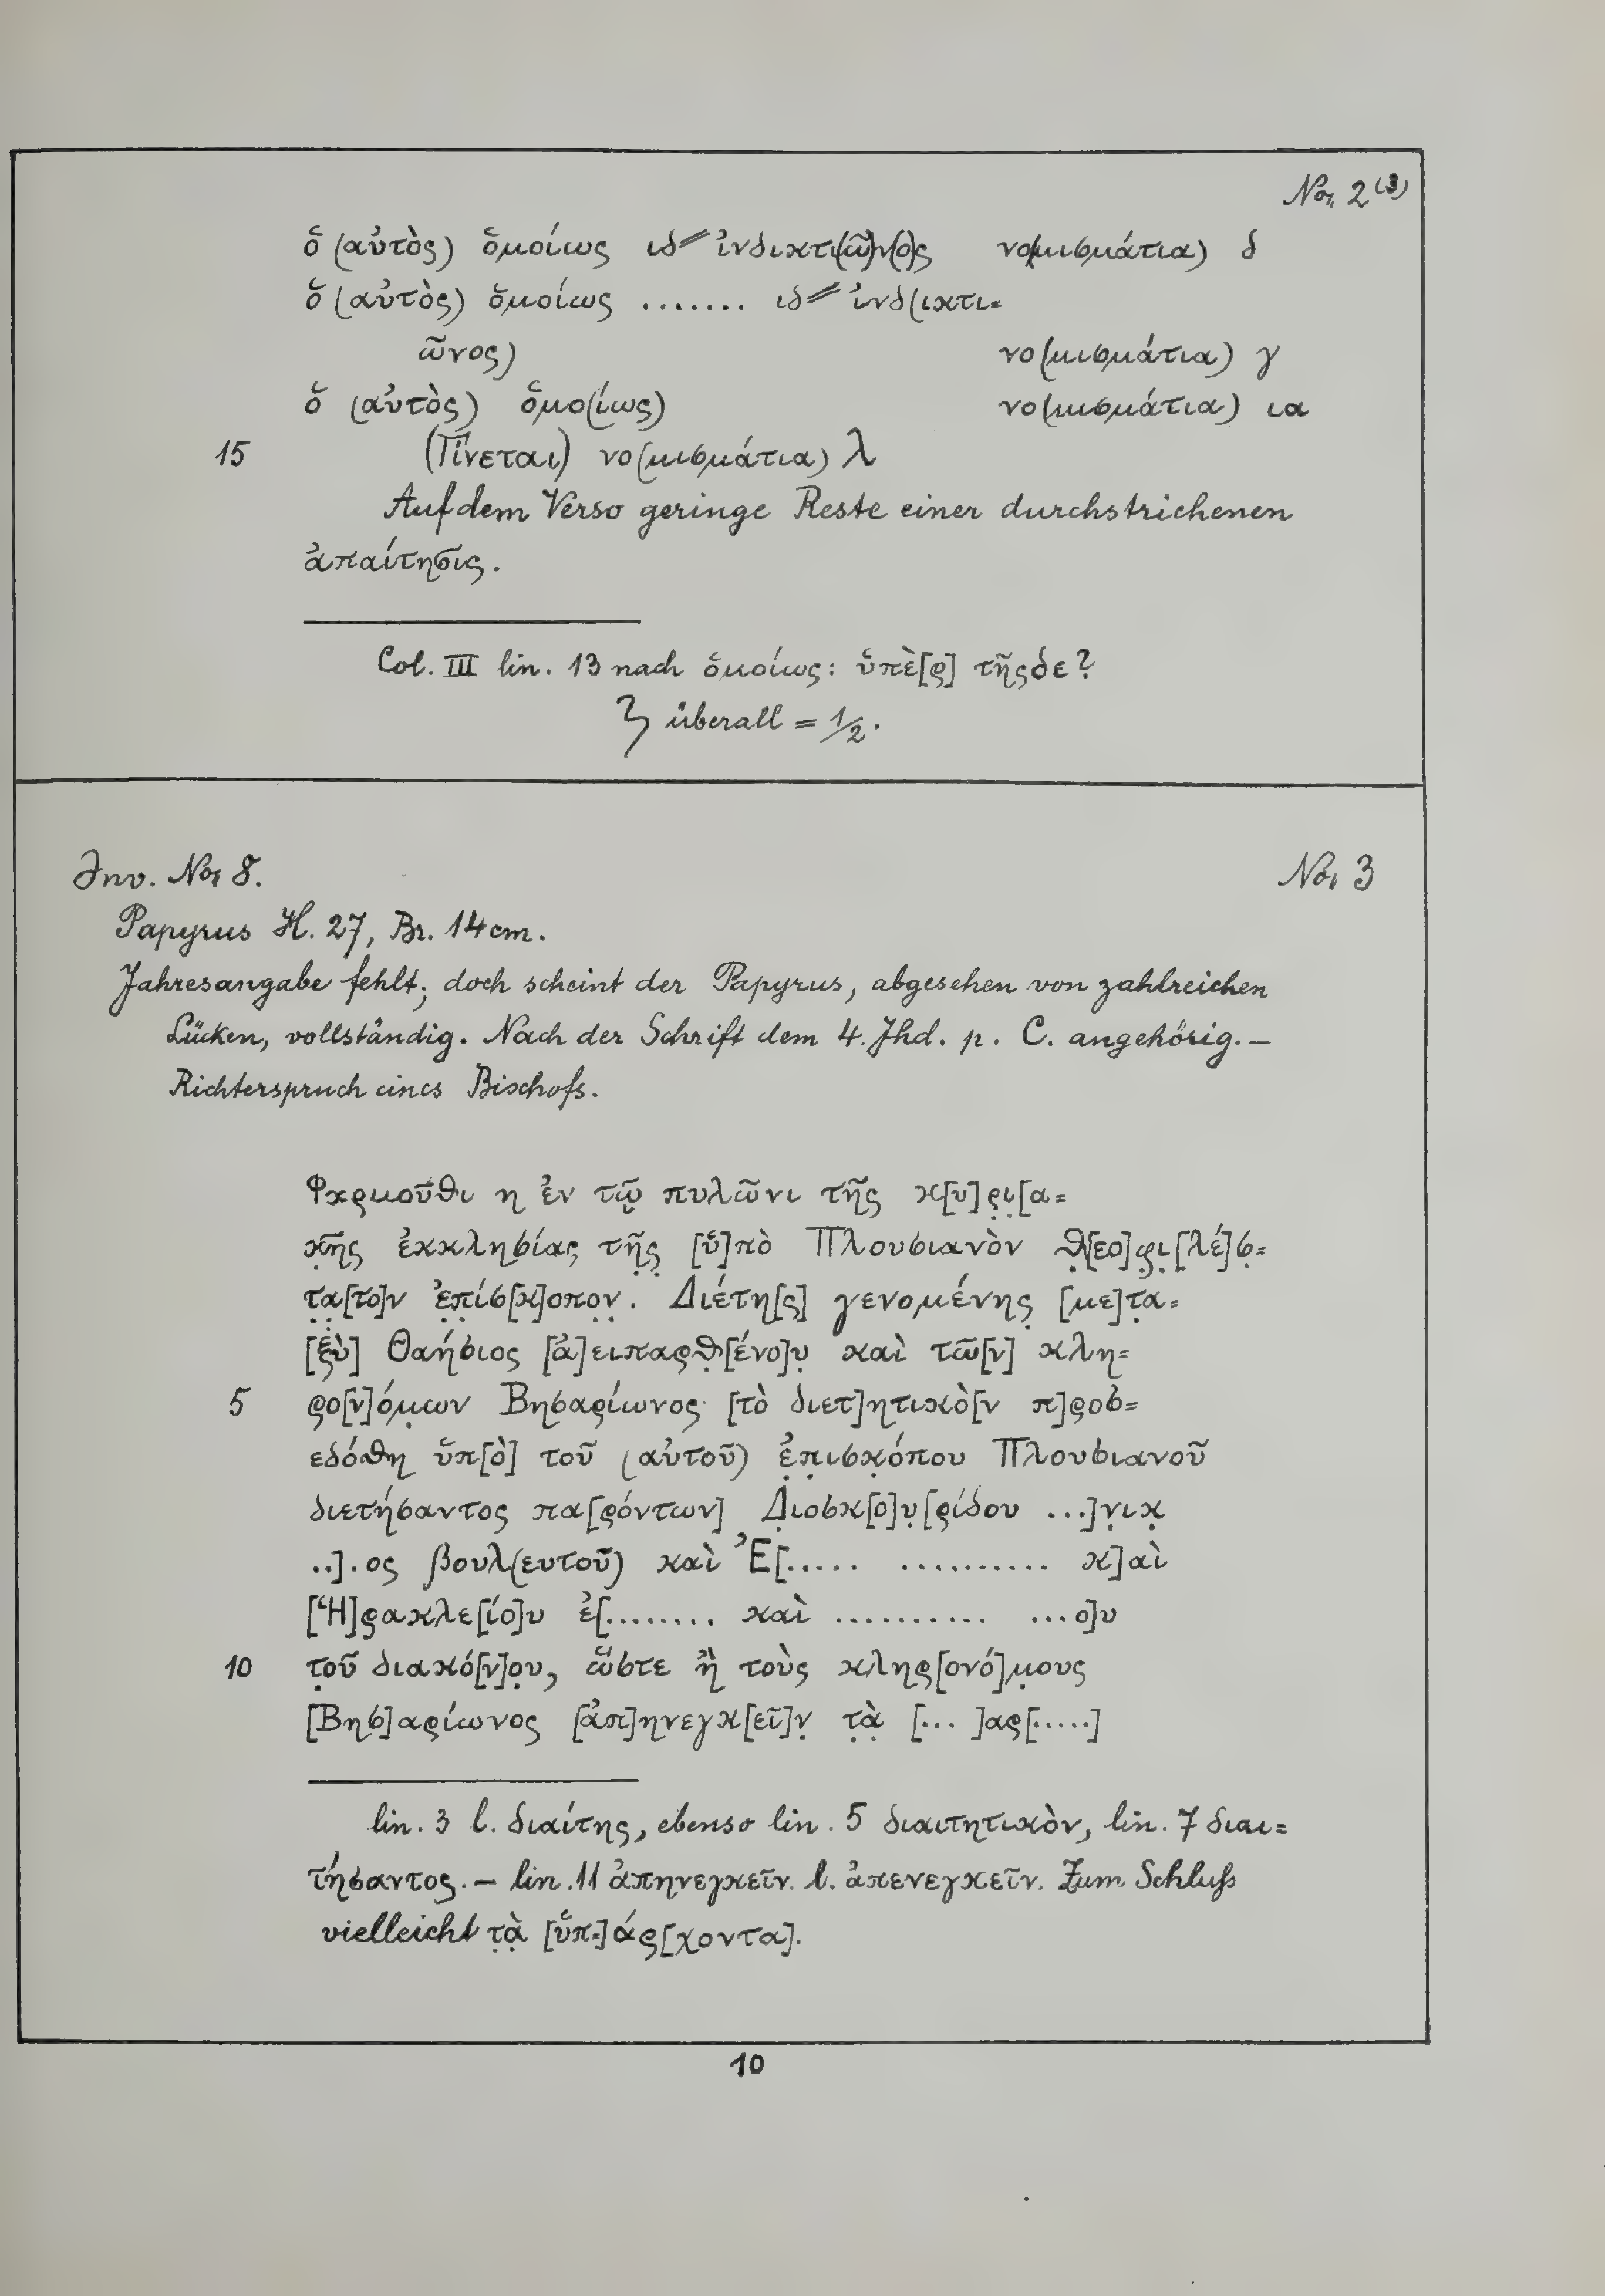 No. 2 (3)
ὁ (αὐτὸς) ὁμοίως ιδ〃 ἰνδικτι(ῶ)ν(ο)ς νο(μισμάτια) δ
ὁ (αὐτὸς) ὁμοίως ....... ιδ〃 ἰνδ(ικτι=
ῶνος) νο(μισμάτια) γ
ὁ (αὐτὸς) ὁμο(ίως) νο(μισμάτια) ια
15 (Γίνεται) νο(μισμάτια) λ
Auf dem Verso geringe Reste einer durchstrichenen
ἀπαίτησις.
Col. III lin. 13 nach ὁμοίως: ὑπὲ[ρ] τῆςδε?
ʒ überall = 1/2.
Inv. No. 8. No. 3
Papyrus H. 27, Br. 14 cm.
Jahresangabe fehlt; doch scheint der Papyrus, abgesehen von zahlreichen
Lücken, vollständig. Nach der Schrift dem 4. Jhd. p. C. angehörig. —
Richterspruch eines Bischofs.
Φαρμοῦθι η ἐν τῷ πυλῶνι τῆς κ[υ]ρ̣ι̣[α=
κ̣ῆς ἐκκλησίας τῆ̣ς̣ [ὑ]πὸ Πλουσιανὸν θ̣[εο]φ̣ι̣[λέ]σ̣=
τ̣α̣[το]ν ἐ̣π̣ίσ[κ]οπο̣ν̣. Διέτη[ς] γενομένης̣ [με]τ̣α=
[ξ̣ὺ] Θαήσιος [ἀ]ειπαρθ̣[ένο]υ̣ καὶ τῶ[ν] κλη=
5 ρο[ν]όμ̣ων Βησαρίωνος [τὸ διετ]ητικὸ[ν π]ροσ=
εδόθη ὑπ[ὸ] τοῦ (αὐτοῦ) ἐ̣π̣ισκ̣όπου Πλουσιανοῦ
διετήσαντος πα[ρόντων] Δ̣ιοσκ[ο]υ̣[ρίδου ...]ν̣ικ̣
..].ος βουλ(ευτοῦ) καὶ Ἐ[..... .......... κ]αὶ
[Ἡ]ρακλε[ίο]υ ἐ[........ καὶ .......... ...ο]υ
10 τ̣οῦ διακό[ν]ο̣υ, ὥστε ἢ̣ τοὺς κληρ[ονό]μ̣ους
[Βησ]αρίωνος [ἀπ]ηνεγκ[εῖ]ν̣ τ̣ὰ̣ [... ]αρ[.....]
lin. 3 l. διαίτης, ebenso lin. 5 διαιτητικὸν, lin. 7 διαι=
τήσαντος. — lin. 11 ἀπηνεγκεῖν l. ἀπενεγκεῖν. Zum Schluß
vielleicht τ̣ὰ̣ [ὑπ=]άρ[χοντα].
10